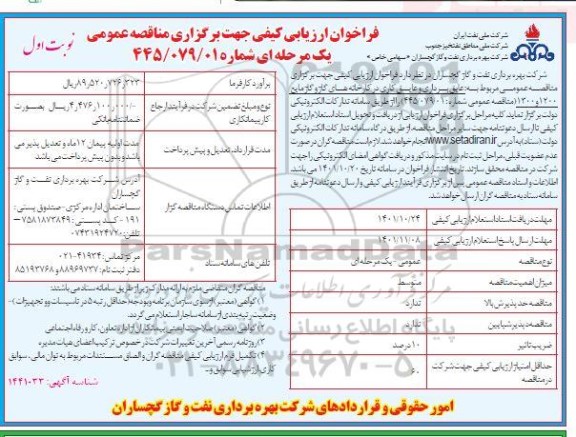 شرکت ملی نفت ایران
شرکت ملی مناطق نفتخیز جنوب
شرکت بهره برداری نفت و گاز گچساران «سهامی خاص»
فراخوان ارزیابی کیفی جهت برگزاری مناقصه عمومی
یک مرحله ای شماره ۴۴۵/۰۷۹/۰۱
نوبت اول
شرکت بهره برداری نفت و گاز گچساران در نظر دارد فراخوان ارزیابی کیفی جهت برگزاری
مناقصه عمومی مربوط به: عایق برداری و عایق کاری در کارخانه های گاز و گاز مایع
۱۲۰۰ و ۱۳۰۰ (مناقصه عمومی شماره: ۴۴۵/۰۷۹/۰۱) را از طریق سامانه تدارکات الکترونیکی
دولت برگزار نماید. کلیه مراحل برگزاری فراخوان ارزیابی از دریافت و تحویل اسناد استعلام ارزیابی
کیفی تا ارسال دعوتنامه جهت سایر مراحل مناقصه، از طریق درگاه سامانه تدارکات الکترونیکی
دولت (ستاد) به آدرس www.setadiran.ir انجام خواهد شد. لازم است مناقصه گران در صورت
عدم عضویت قبلی، مراحل ثبت نام در سایت مذکور و دریافت گواهی امضای الکترونیکی را جهت
شرکت در مناقصه محقق سازند. تاریخ انتشار فراخوان در سامانه تاریخ ۱۴۰۱/۱۰/۲۰ می باشد.
اطلاعات و اسناد مناقصه عمومی پس از برگزاری فرآیند ارزیابی کیفی و ارسال دعوتنامه از طریق
سامانه ستاد به مناقصه گران ارسال خواهد شد.
مهلت دریافت اسناد استعلام ارزیابی کیفی ۱۴۰۱/۱۰/۲۴
مهلت ارسال پاسخ استعلام ارزیابی کیفی ۱۴۰۱/۱۱/۰۸
نوع مناقصه عمومی - یک مرحله ای
میزان اهمیت مناقصه متوسط
مناقصه حد پذیرش بالا ندارد
مناقصه حد پذیرش پایین ندارد
ضریب تاثیر ۱۰ درصد
حداقل امتیاز ارزیابی کیفی جهت شرکت در مناقصه ۶۰
برآورد کارفرما ۸۹,۵۲۰,۷۲۶,۳۲۳ ریال
نوع و مبلغ تضمین شرکت در فرآیند ارجاع کار پیمانکاری ۴,۴۷۶,۱۰۰,۰۰۰/- ریال بصورت ضمانتنامه بانکی
مدت قرارداد، تعدیل و پیش پرداخت مدت اولیه پیمان ۱۲ ماه و تعدیل پذیر می باشد و بدون پیش پرداخت می باشد
اطلاعات تماس دستگاه مناقصه گزار آدرس شرکت بهره برداری نفت و گاز گچساران
ساختمان اداره مرکزی - صندوق پستی: ۱۹۱ - کد پستی: ۷۵۸۱۸۷۳۸۴۹
تلفن: ۰۷۴۳۱۹۲۴۷۲۰
تلفن های سامانه ستاد مرکز تماس: ۴۱۹۳۴-۰۲۱
دفتر ثبت نام: ۸۸۹۶۹۷۳۷ و ۸۵۱۹۳۷۶۸
مناقصه گران متقاضی ملزم به ارائه مدارک زیر از طریق سامانه ستاد می باشند:
۱) گواهی (معتبر) از سوی سازمان برنامه و بودجه: حداقل رتبه ۵ در تاسیسات و تجهیزات) -
وضعیت رتبه بندی از سامانه ساجار استعلام می گردد.
۲) گواهی (معتبر) صلاحیت ایمنی پیمانکاران از اداره تعاون، کار و رفاه اجتماعی
۳) روزنامه رسمی آخرین تغییرات شرکت در خصوص ترکیب اعضای هیات مدیره
۴) تکمیل فرم ارزیابی کیفی مناقصه گران و الصاق مستندات مربوط به توان مالی، سوابق
کاری، ارزشیابی سوابق و...
شناسه آگهی: ۱۴۴۱۰۳۳
امور حقوقی و قراردادهای شرکت بهره برداری نفت و گاز گچساران
ParsNamadData
پایگاه اطلاع رسانی
۰۲۱-۸۸۳۴۹۶۷۰-۵